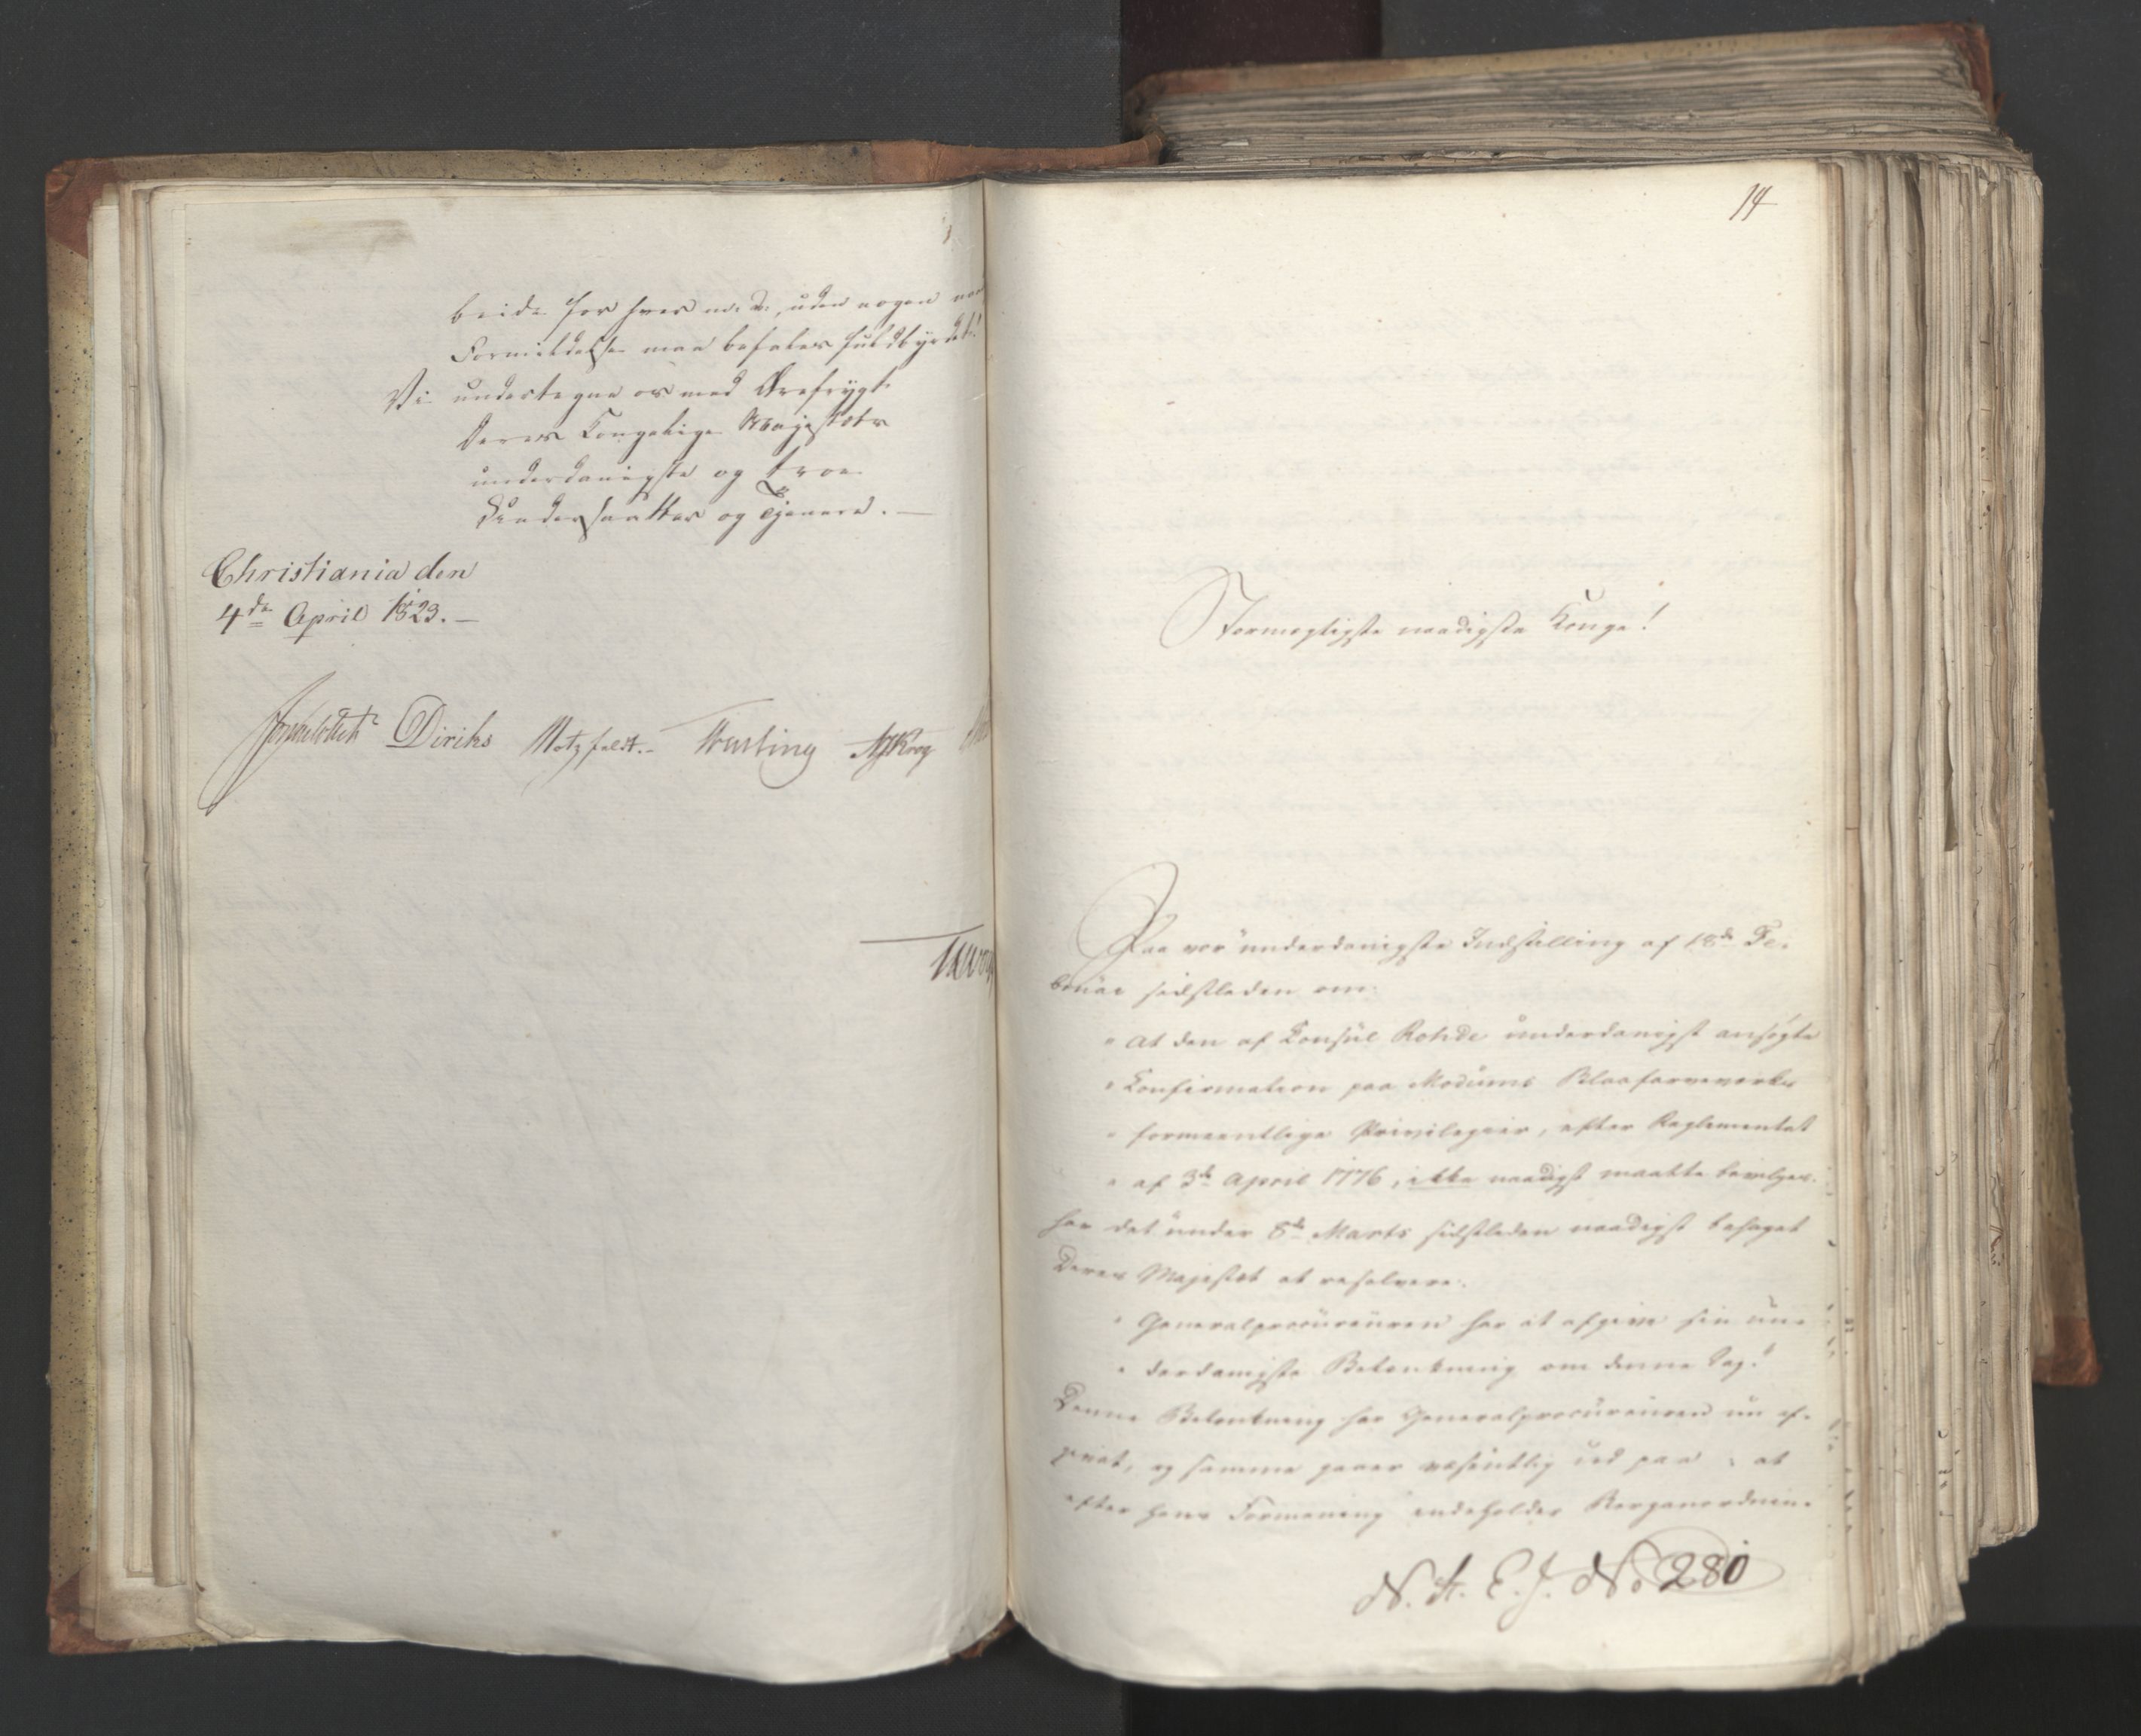 beide for hver m. v., uden nogen
Formildelse maa befales fuldbyrdet!
Vi undertegne os med Ærefrygt
Deres Kongelige Majestæts
underdanigste og troe
Undersaatter og Tjenere. —
Christiania den
4de April 1823. —
Diriks Motzfeldt. Krog
14
Stormægtigste naadigste Konge!
Paa vor underdanigste Indstilling af 18de Fe-
bruar sidstleden om:
" at den af Konsul Rohde underdanigst ansøgte
" Confirmation paa Modums Blaafarveværks
" formeentlige Privilegier, efter Reglementet
" af 3de April 1776, ikke naadigst maatte bevilges.
har det under 8de Marts sidstleden naadigst behaget
Deres Majestæt at resolvere:
" Generalprocureuren har at afgive sin un-
" derdanigste Betænkning om denne Sag."
Denne Betænkning har Generalprocureuren nu af-
givet, og samme gaaer væsentlig ud paa: at
efter hans Formening indeholder Berganordnin-
N. St. E. J. No 280